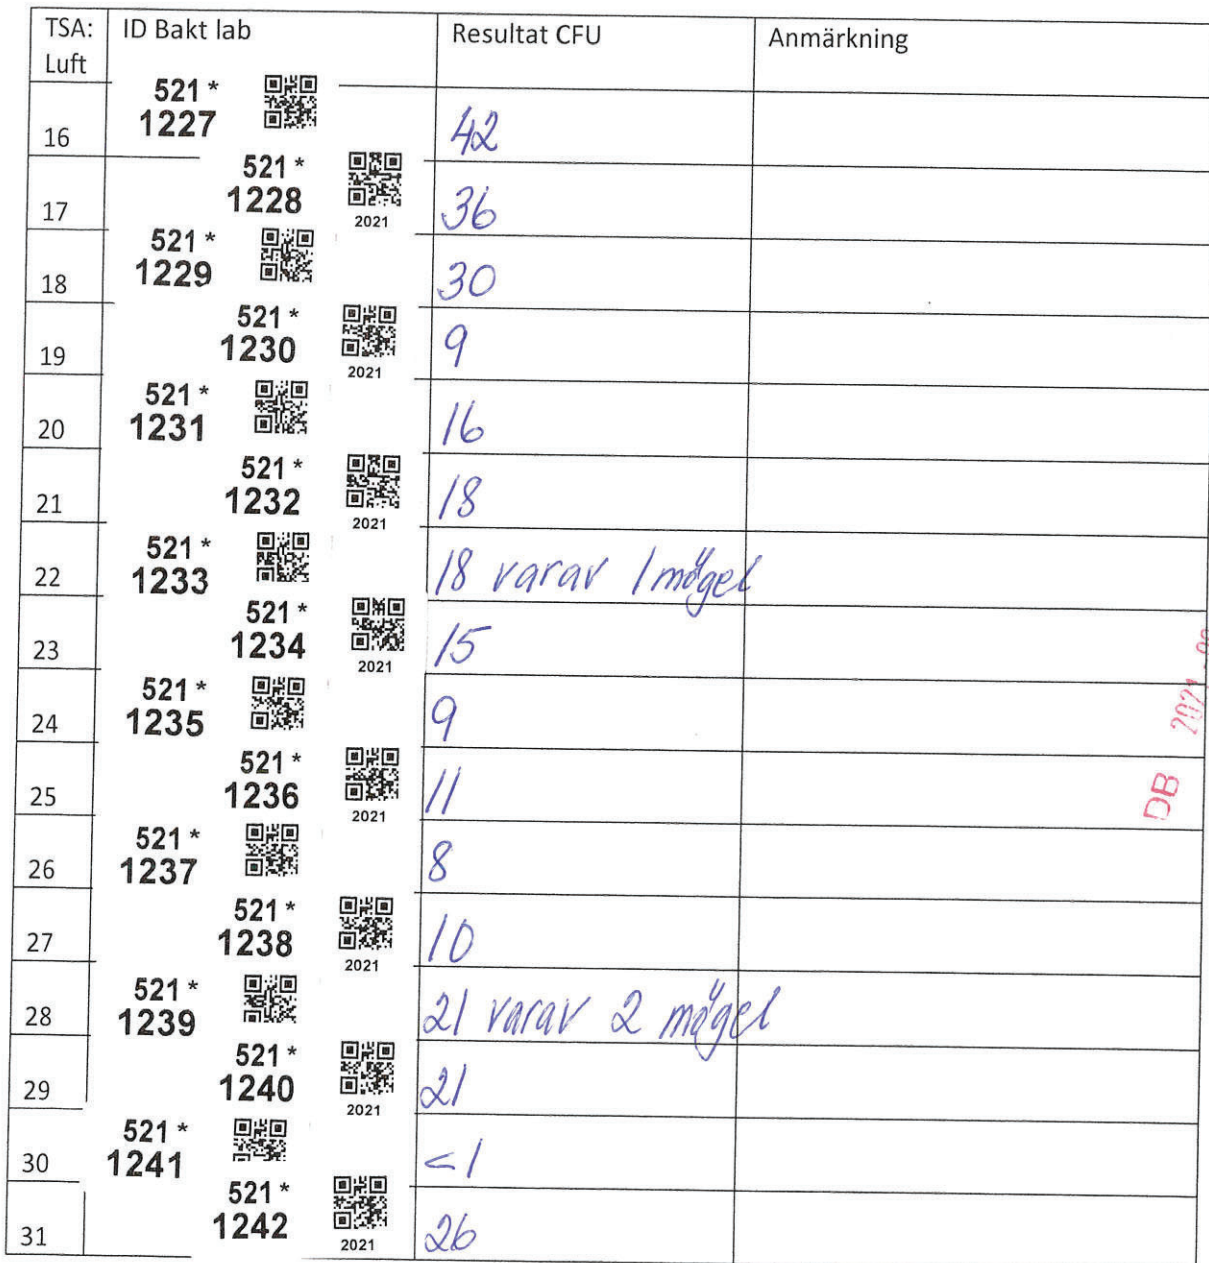 TSA: Luft ID Bakt lab Resultat CFU Anmärkning
16 521 * 1227 42
17 521 * 1228 2021 36
18 521 * 1229 30
19 521 * 1230 2021 9
20 521 * 1231 16
21 521 * 1232 2021 18
22 521 * 1233 18 varav 1 mögel
23 521 * 1234 2021 15
24 521 * 1235 9
25 521 * 1236 2021 11
26 521 * 1237 8
27 521 * 1238 2021 10
28 521 * 1239 21 varav 2 mögel
29 521 * 1240 2021 21
30 521 * 1241 <1
31 521 * 1242 2021 26
DB 2021